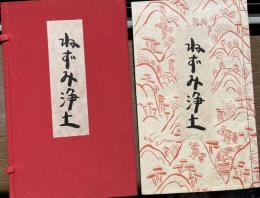 ねずみ浄土
ねずみ浄土